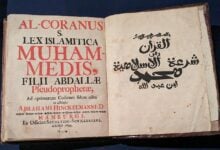 AL-CORANUS
S.
LEX ISLAMITICA
MUHAM-
MEDIS,
FILII ABDALLÆ
Pseudoprophetæ,
ABRAHAMI HINCKELMANNI, D.
HAMBURGI,
القرآن
شريعة الإسلامية
محمد
ابن عبد الله